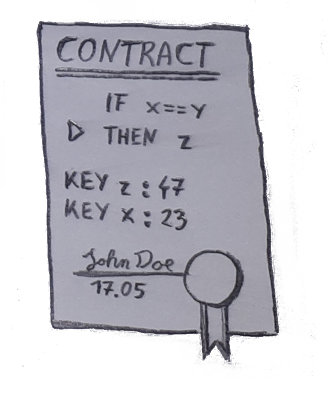 CONTRACT
IF X==Y
▷ THEN Z
KEY Z : 47
KEY X : 23
John Doe
17.05